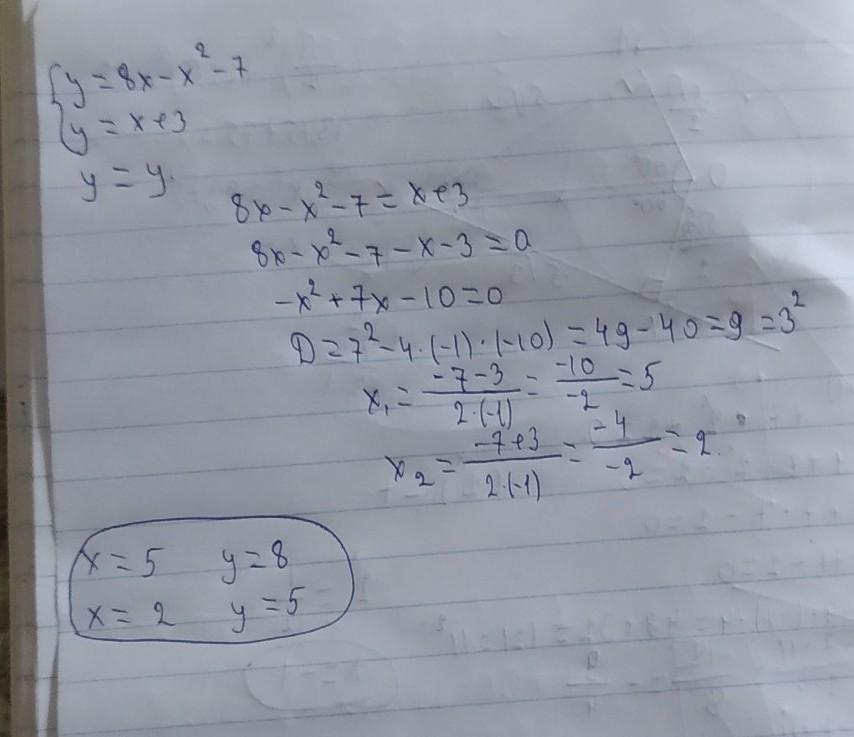 y = 8x - x² - 7
y = x+3
y = y.
8x - x² - 7 = x+3
8x - x² - 7 - x - 3 = 0
-x² + 7x - 10 = 0
D = 7² - 4·(-1)·(-10) = 49 - 40 = 9 = 3²
x₁ = (-7-3)/(2·(-1)) = (-10)/(-2) = 5
x₂ = (-7+3)/(2·(-1)) = (-4)/(-2) = 2.
x = 5 y = 8
x = 2 y = 5